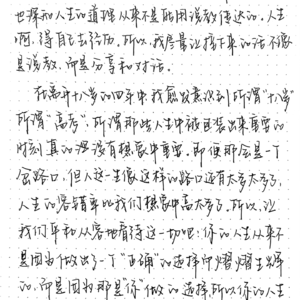 也深知人生的道理从来不是能用说教传达的。人生
啊,得自己去经历。所以,我尽量让接下来的话不像
是说教,而是分享和对话。
在离开十八岁的四年中我愈发意识到所谓“十八岁”
所谓“高考”,所谓那些人生中被包装出来重要的
时刻真的没有想象中重要。即便那会是一个
岔路口,但人这一生像这样的路口还有太多太多了,
人生的容错率比我们想象中高太多了。所以,让
我们平和从容地看待这一切吧:你的人生从来不
是因为做出了一个“正确”的选择而熠熠生辉
的,而是因为那是“你”做的选择所以你的人生